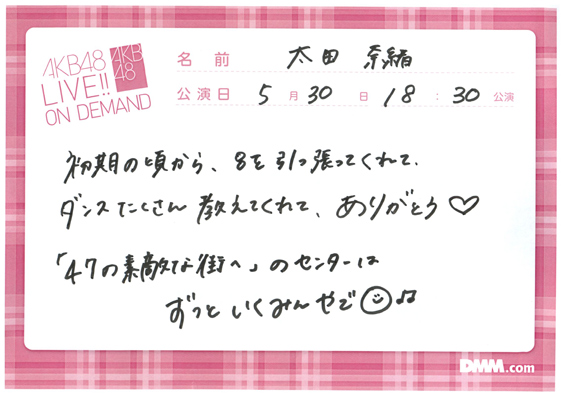 AKB48
LIVE!!
ON DEMAND
AKB
48
名前 太田 奈緒
公演日 5月30日 18:30公演
初期の頃から、8を引っ張ってくれて、
ダンスたくさん教えてくれて、ありがとう♡
「47の素敵な街へ」のセンターは
ずっといくみんやで☺♫
DMM.com